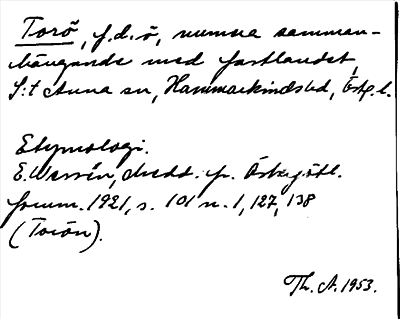 Torö, f.d. ö, numera samman-
hängande med fastlandet,
S:t Anna sn, Hammarkinds hd, Östg. l.
Etymologi.
E. Wessén, Medd. fr. Östergötl.
fornm. 1921, s. 101 n. 1, 127, 138
(Torön).
Th. A. 1953.